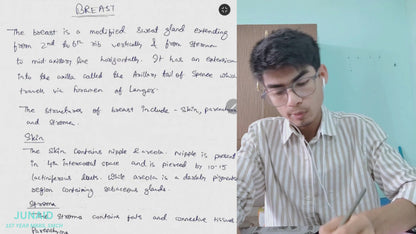 BREAST
The breast is a modified sweat gland extending
from 2nd to 6th rib vertically & from sternum
to mid axillary line horizontally. It has an extension
into the axilla called the Axillary tail of Spence which
travels via foramen of Langer.
The structures of breast include - Skin, parenchyma
and stroma.
Skin
The skin contains nipple & areola. Nipple is present
in 4th intercostal space and is pierced by 10-15
lactiferous ducts. While areola is a darkly pigmented
region containing sebaceous glands.
Stroma
The stroma contains fats and connective tissue
Parenchyma
JUNAID
1ST YEAR MBBS SMCH